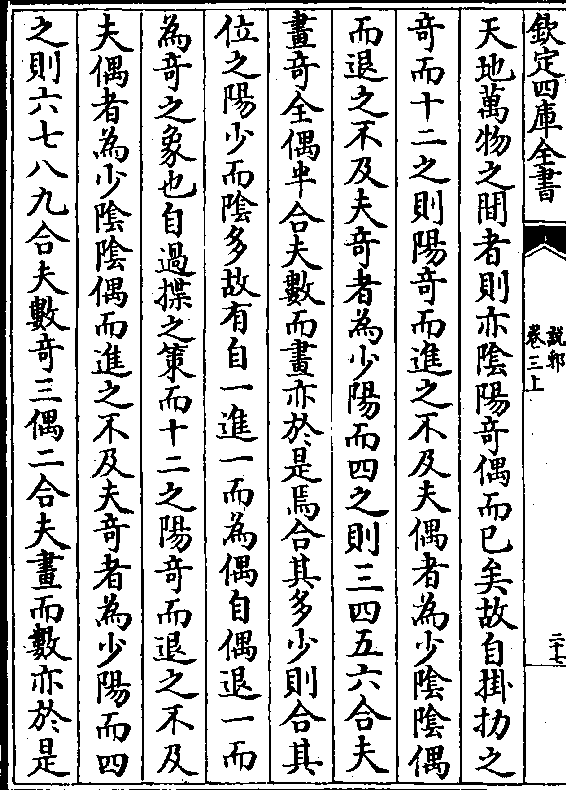 欽定四庫全書
說郛
卷三上
二十七
天地萬物之間者則亦陰陽竒偶而已矣故自掛扐之
竒而十二之則陽竒而進之不及夫偶者為少陰陰偶
而退之不及夫竒者為少陽而四之則三四五六合夫
畫竒全偶半合夫數而畫亦於是焉合其多少則合其
位之陽少而陰多故有自一進一而為偶自偶退一而
為竒之象也自過揲之策而十二之陽竒而退之不及
夫偶者為少陰陰偶而進之不及夫竒者為少陽而四
之則六七八九合夫數竒三偶二合夫畫而數亦於是